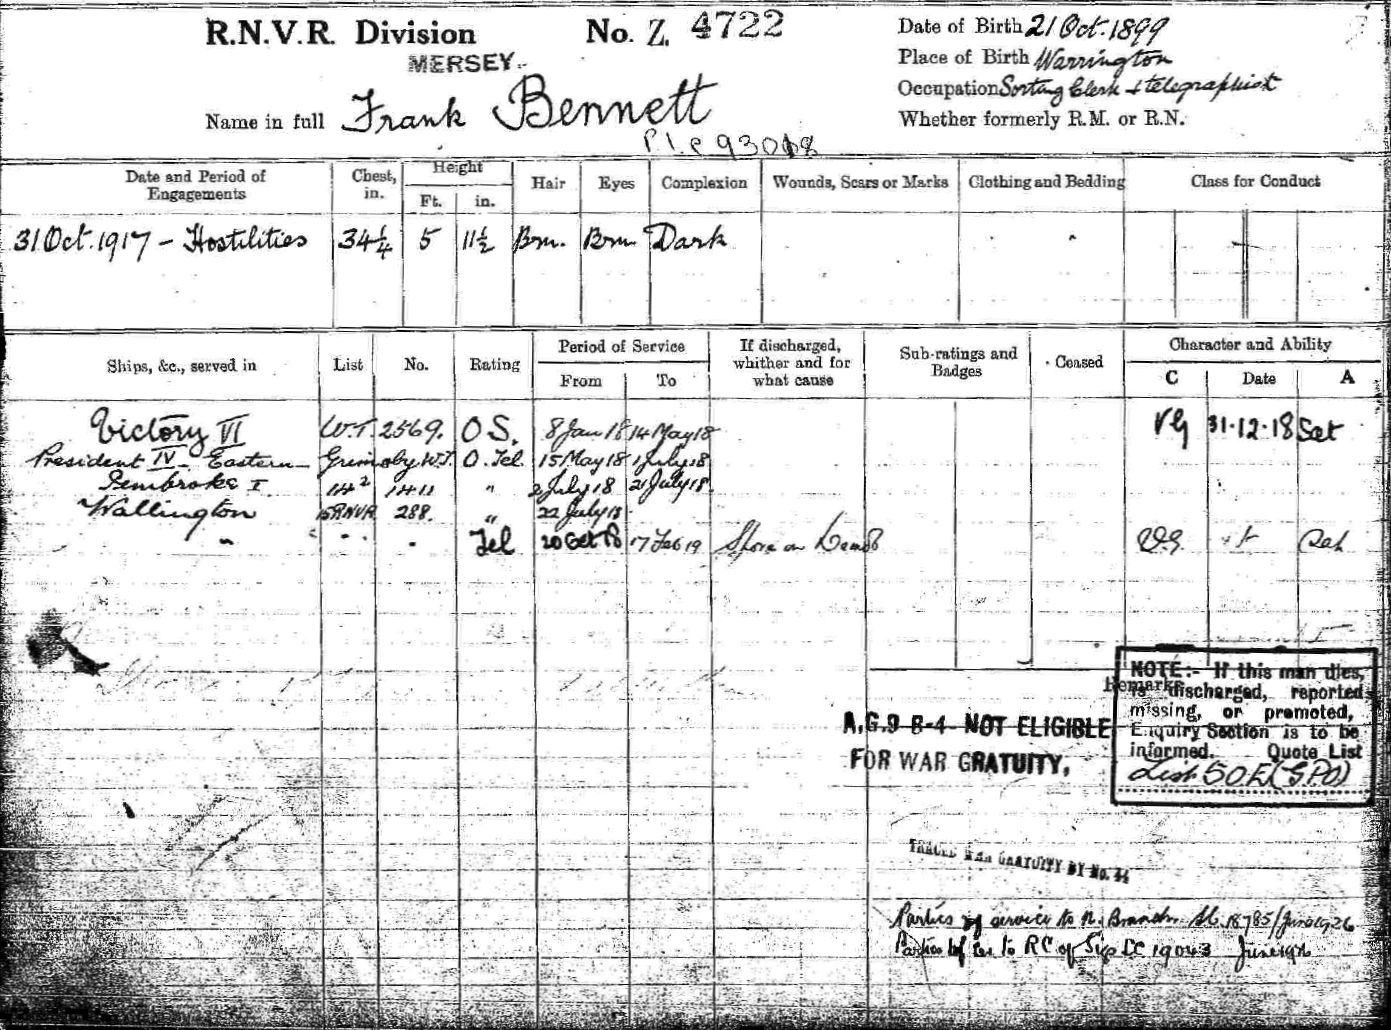 R.N.V.R. Division
No. Z. 4722
MERSEY.
Name in full Frank Bennett
Date of Birth 21 Oct. 1899
Place of Birth Warrington
Occupation Sorting Clerk & telegraphist
Whether formerly R.M. or R.N.
93018
Date and Period of Engagements
Chest, in.
Height
Ft. in.
Hair
Eyes
Complexion
Wounds, Scars or Marks
Clothing and Bedding
Class for Conduct
31 Oct. 1917 - Hostilities 34 1/4 5 11 1/2 Brn. Brn. Dark
Ships, &c., served in
List
No.
Rating
Period of Service
From To
If discharged, whither and for what cause
Sub-ratings and Badges
Ceased
Character and Ability
C Date A
Victory VI W.T. 2569. O S. 8 Jan 18 14 May 18 VG 31-12-18 Sat
President IV - Eastern - Grimsby W.T. O. Tel. 15 May 18 1 July 18
Pembroke I 14² 1411 " 2 July 18 21 July 18
Wallington 15RNVR 288. " 22 July 18
" " " Tel 20 Oct 18 17 Feb 19 Shore on Demob V.G. Sat
Remarks
NOTE:- If this man dies,
is discharged, reported
missing, or promoted,
Enquiry Section is to be
informed. Quote List
List 50E (GPO)
A.G.9 B-4 NOT ELIGIBLE
FOR WAR GRATUITY.
TRACED WAR GRATUITY BY No. 44
Parties of service to N. Branch 18785/June 1926
to RC of Sig 19043 June